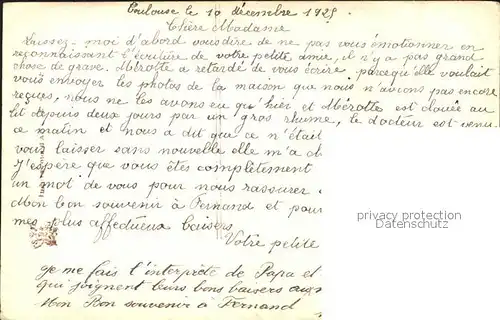 Toulouse le 10 décembre 1925
Chère Madame
Laissez-moi d'abord vous dire de ne pas vous émotionner en
reconnaissant l'écriture de votre petite amie, il n'y a pas grand
chose de grave. Mérotte a retardé de vous écrire parcequ'elle voulait
vous envoyer les photos de la maison que nous n'avons pas encore
reçues, nous ne les avons eu qu'hier et Mérotte est clouée au
lit depuis deux jours par un gros rhume, le docteur est venu
ce matin et nous a dit que ce n'était
vous laisser sans nouvelle elle m'a
J'espère que vous êtes complètement
un mot de vous pour nous rassurer
Mon bon souvenir à Fernand et pour
mes plus affectueux baisers
Votre petite
privacy protection
Datenschutz
Je me fais l'interprète de Papa et
qui joignent leurs bons baisers aux
Mon Bon souvenir à Fernand